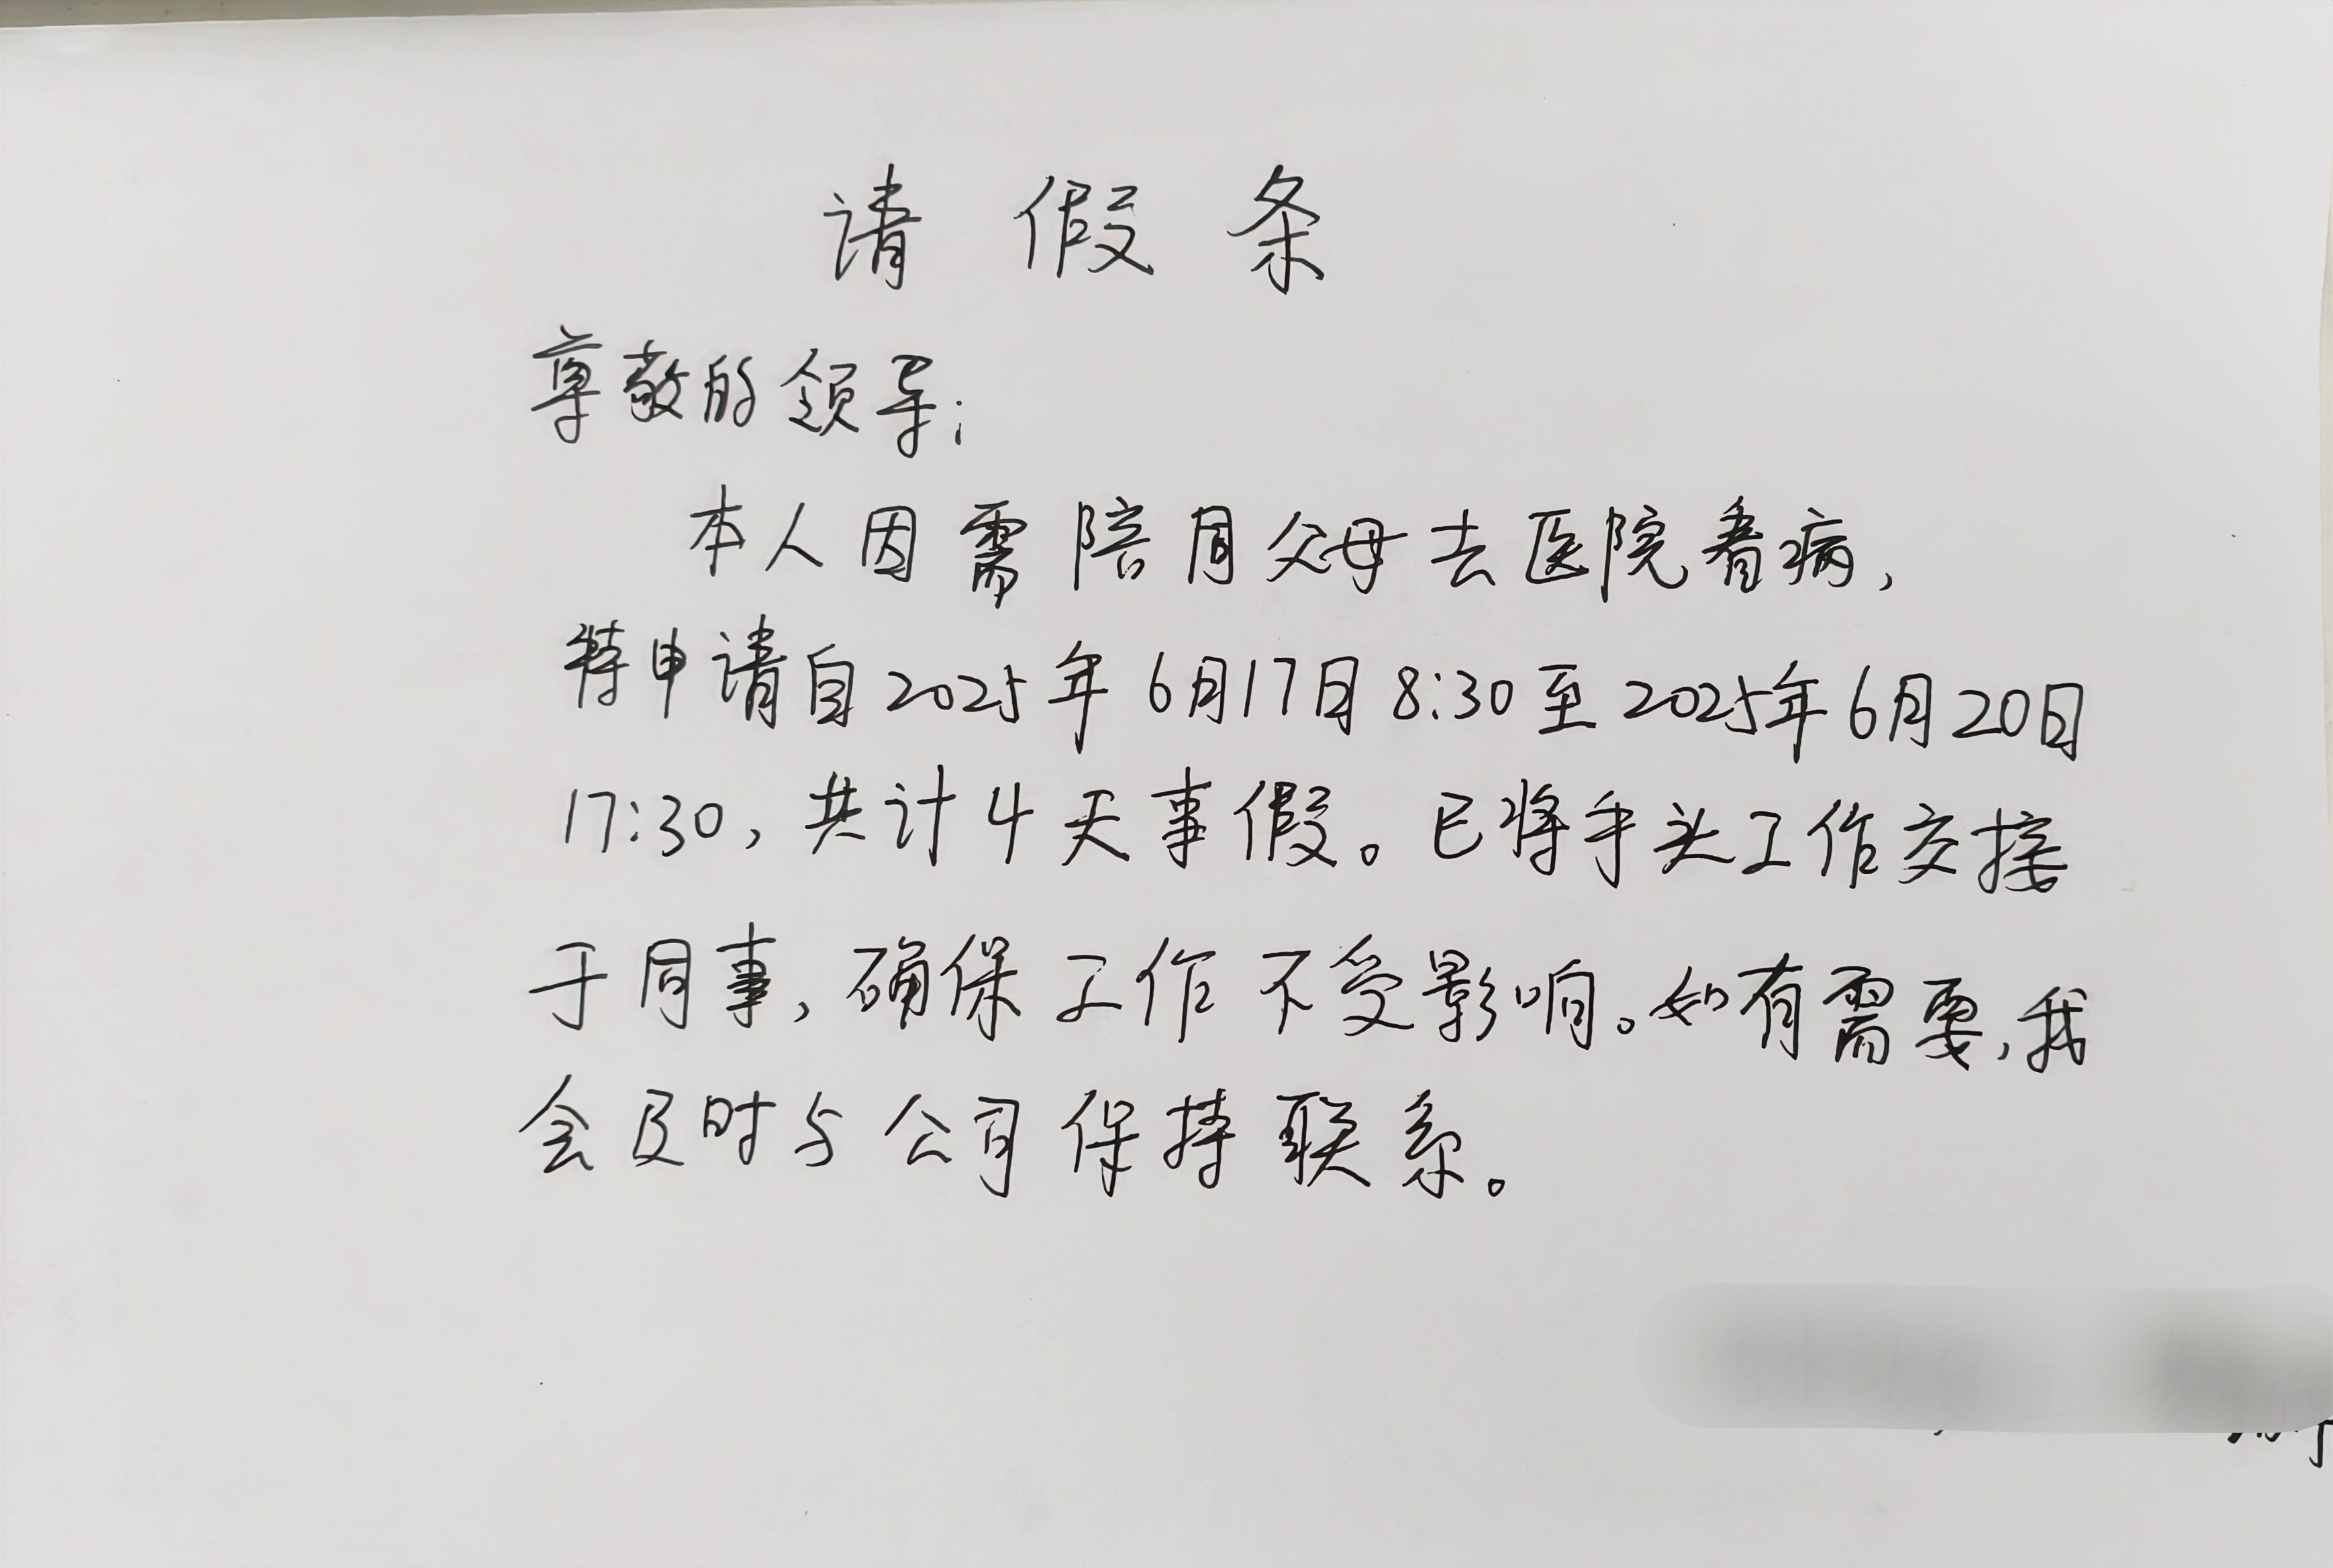 请假条
尊敬的领导：
本人因需陪同父母去医院看病，
特申请自2025年6月17日8:30至2025年6月20日
17:30，共计4天事假。已将手头工作交接
于同事，确保工作不受影响。如有需要，我
会及时与公司保持联系。